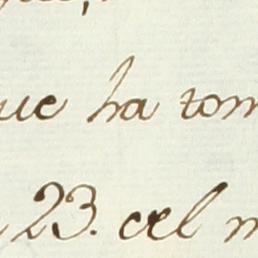 ue ha tom
23. del m